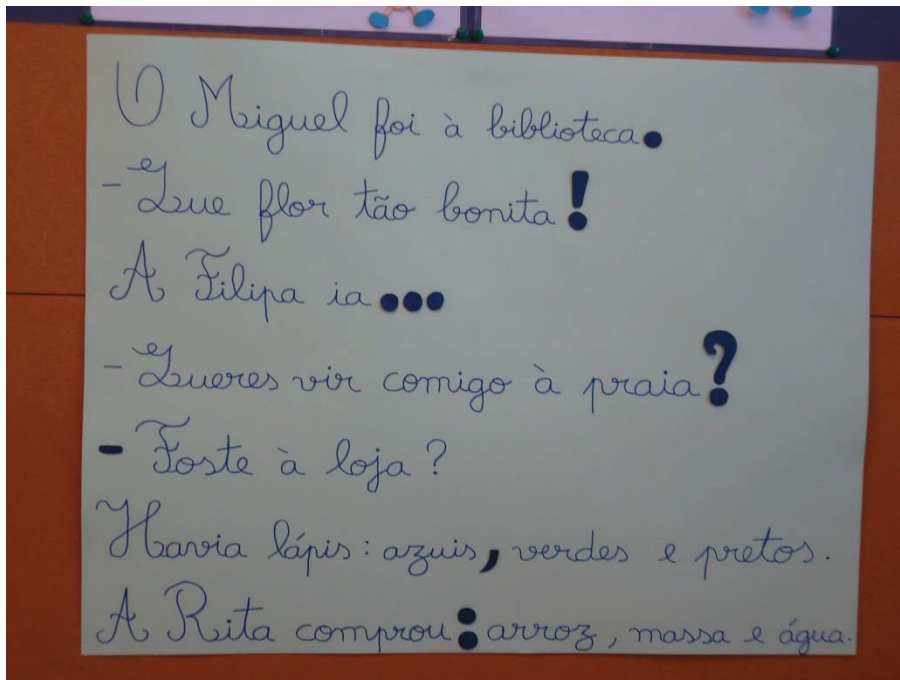 O Miguel foi à biblioteca.
- Que flor tão bonita!
A Filipa ia...
- Queres vir comigo à praia?
- Foste à loja?
Havia lápis: azuis, verdes e pretos.
A Rita comprou: arroz, massa e água.